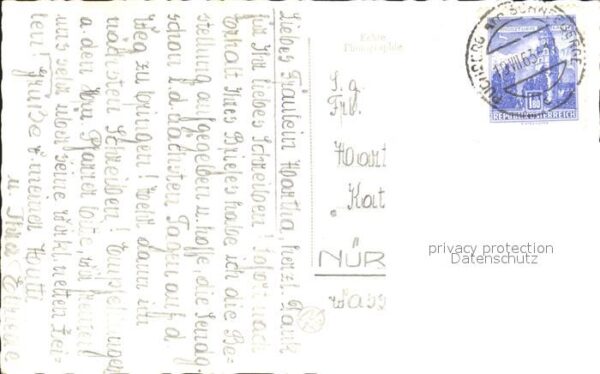 Liebes Fräulein Martha, herzl. Dank
für Ihr liebes Schreiben! Sofort nach
Erhalt Ihres Briefes habe ich die Be-
stellung aufgegeben u. hoffe, die Sendg.
schon i. d. nächsten Tagen auf d.
Weg zu bringen! Mehr dann im
nächsten Schreiben! Empfehlungen
a. den Hw. Pfarrer bitte, wir freuen
uns sehr über seine wohlwollen Zei-
len! Grüße v. meiner Mutti
u. Ihrer
Echte
Photographie
S. g.
Frl.
Mart
"Kat
NÜR
Wass
PUCHBERG AM SCHNEEBERGE
1.80
REPUBLIK ÖSTERREICH
privacy protection
Datenschutz